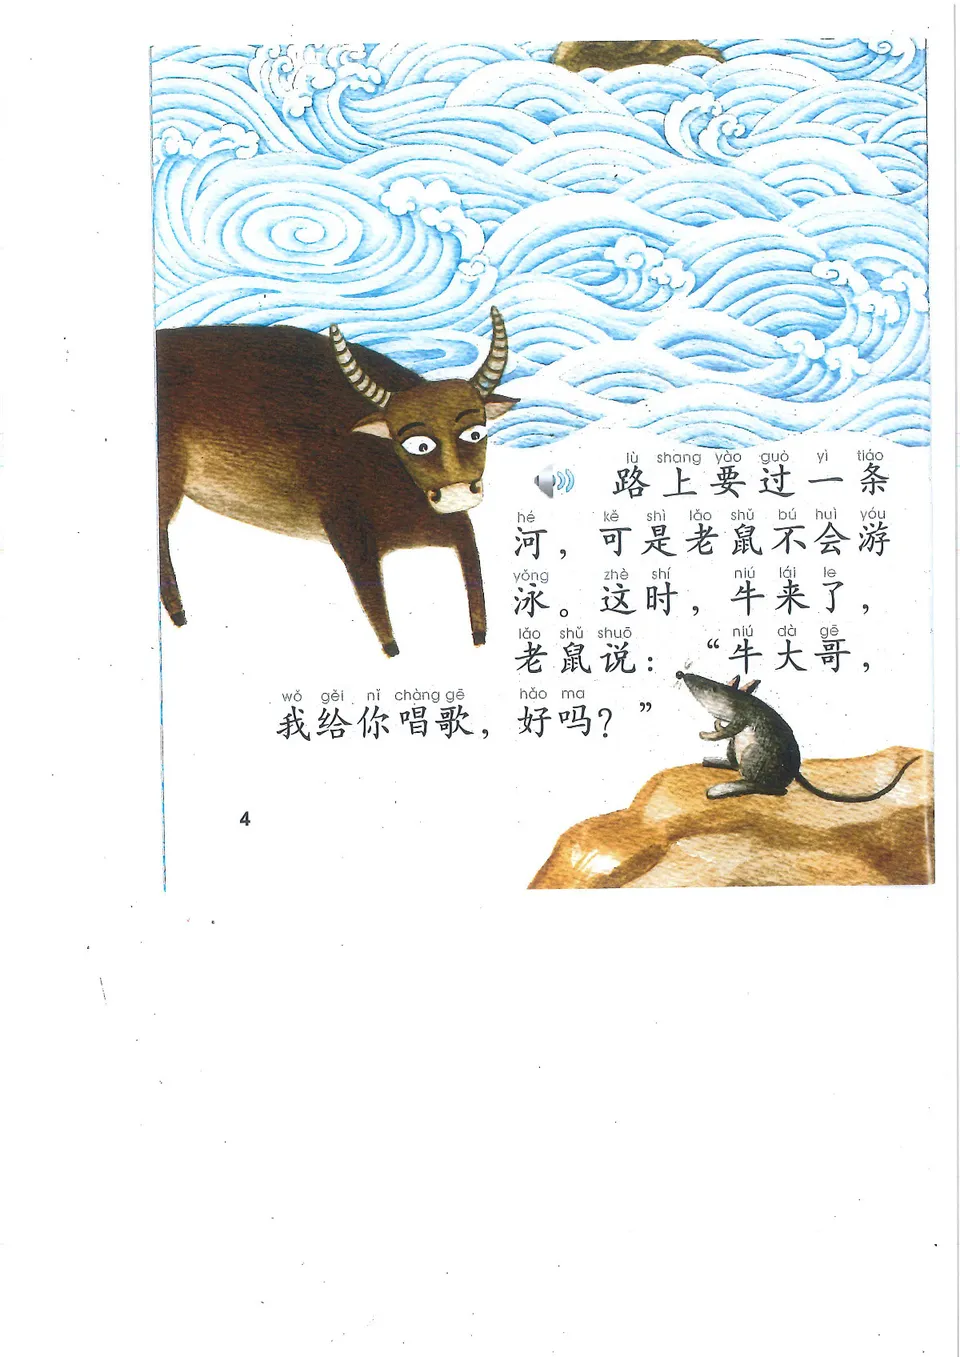 lù shang yào guò yì tiáo
路上要过一条
hé kě shì lǎo shǔ bú huì yóu
河，可是老鼠不会游
yǒng zhè shí niú lái le
泳。这时，牛来了，
lǎo shǔ shuō niú dà gē
老鼠说：“牛大哥，
wǒ gěi nǐ chàng gē hǎo ma
我给你唱歌，好吗？”
4